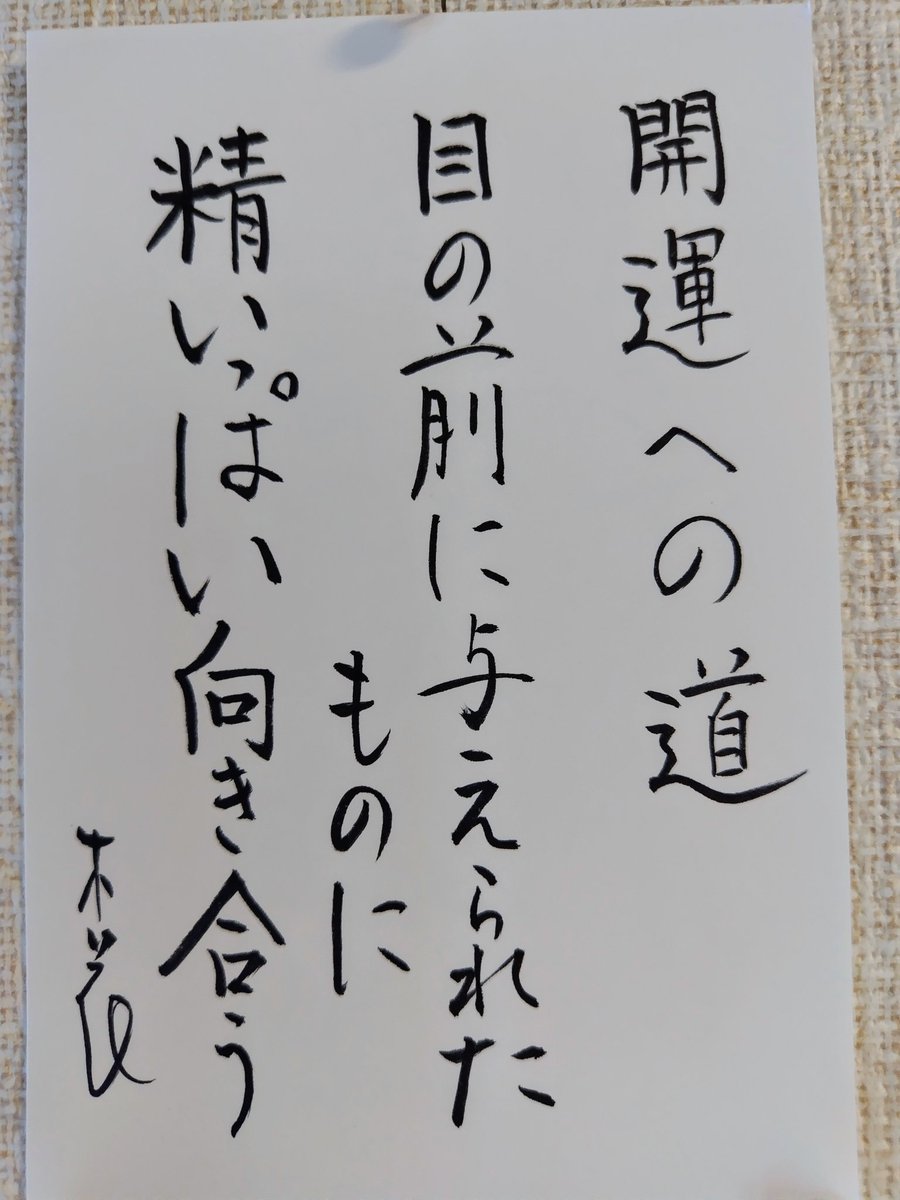 開運への道
目の前に与えられた
ものに
精いっぱい向き合う